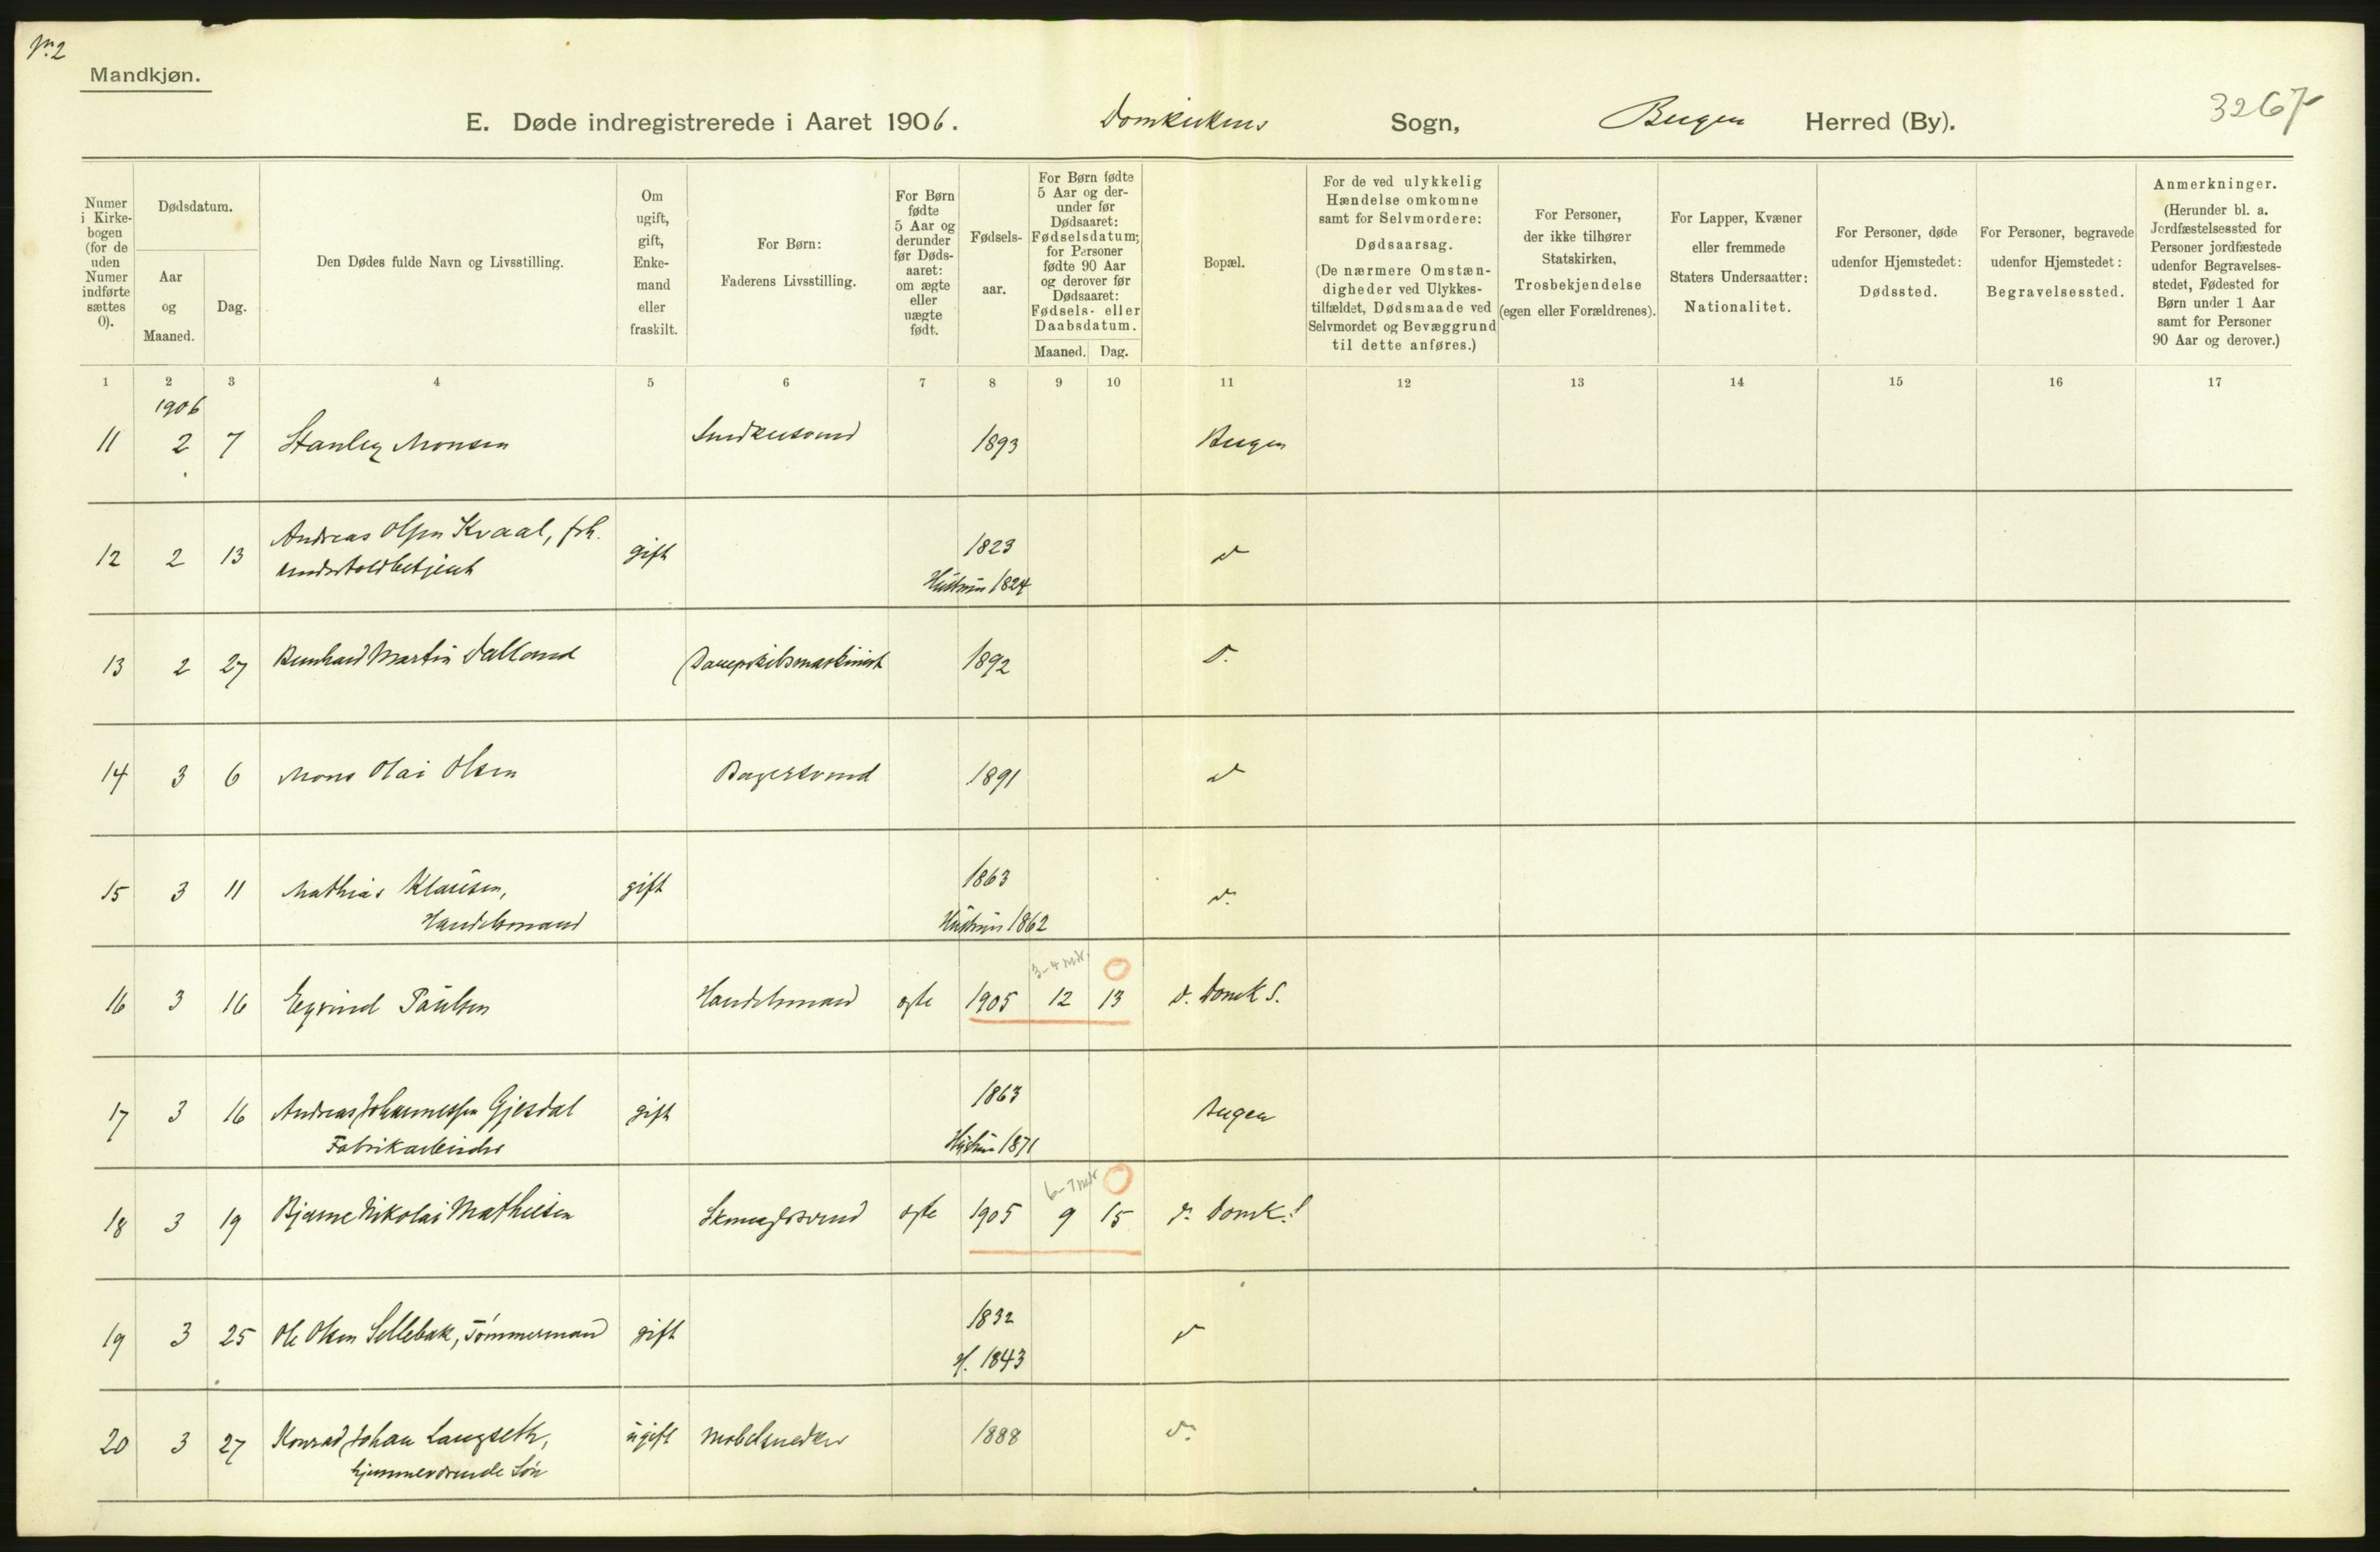 No. 2
Mandkjøn.
E. Døde indregistrerede i Aaret 1906. Domkirkens Sogn, Bergen Herred (By).
3267
Numer i Kirkebogen (for de uden Numer indførte sættes 0).
Dødsdatum.
Aar og Maaned.
Dag.
Den Dødes fulde Navn og Livsstilling.
Om ugift, gift, Enkemand eller fraskilt.
For Børn: Faderens Livsstilling.
For Børn fødte 5 Aar og derunder før Dødsaaret: om ægte eller uægte født.
Fødselsaar.
For Børn fødte 5 Aar og derunder før Dødsaaret: Fødselsdatum; for Personer fødte 90 Aar og derover før Dødsaaret: Fødsels- eller Daabsdatum.
Maaned. Dag.
Bopæl.
For de ved ulykkelig Hændelse omkomne samt for Selvmordere: Dødsaarsag. (De nærmere Omstændigheder ved Ulykkestilfældet, Dødsmaade ved Selvmordet og Bevæggrund til dette anføres.)
For Personer, der ikke tilhører Statskirken, Trosbekjendelse (egen eller Forældrenes).
For Lapper, Kvæner eller fremmede Staters Undersaatter: Nationalitet.
For Personer, døde udenfor Hjemstedet: Dødssted.
For Personer, begravede udenfor Hjemstedet: Begravelsessted.
Anmerkninger. (Herunder bl. a. Jordfæstelsessted for Personer jordfæstede udenfor Begravelsesstedet, Fødested for Børn under 1 Aar samt for Personer 90 Aar og derover.)
1 2 3 4 5 6 7 8 9 10 11 12 13 14 15 16 17
1906
11 2 7 Stanley Monsen Snedkersvend 1893 Bergen
12 2 13 Andreas Olsen Kvaal, frh. gift 1823 d
undertoldbetjent Hustrun 1824
13 2 27 Bernhard Martin Dalland Dampskibsmaskinist 1892 d.
14 3 6 Mons Olai Olsen Bagersvend 1891 d
15 3 11 Mathias Klausen, gift 1863 d.
Handelsmand Hustrun 1862
3-4 mdr.
16 3 16 Eyvind Paulsen Handelsmand ægte 1905 12 13 d. Domk S.
17 3 16 Andreas Johannessen Gjesdal gift 1863 Bergen
Fabrikarbeider Hustrun 1871
6-7 mdr
18 3 19 Bjarne Nikolai Mathiesen Skomagersvend ægte 1905 9 15 d. Domk. S
19 3 25 Ole Olsen Sellebak, Tømmermand gift 1832 d
H. 1843
20 3 27 Konrad Johan Langseth, ugift Møbelsnedker 1888 d.
hjemmeværende Søn